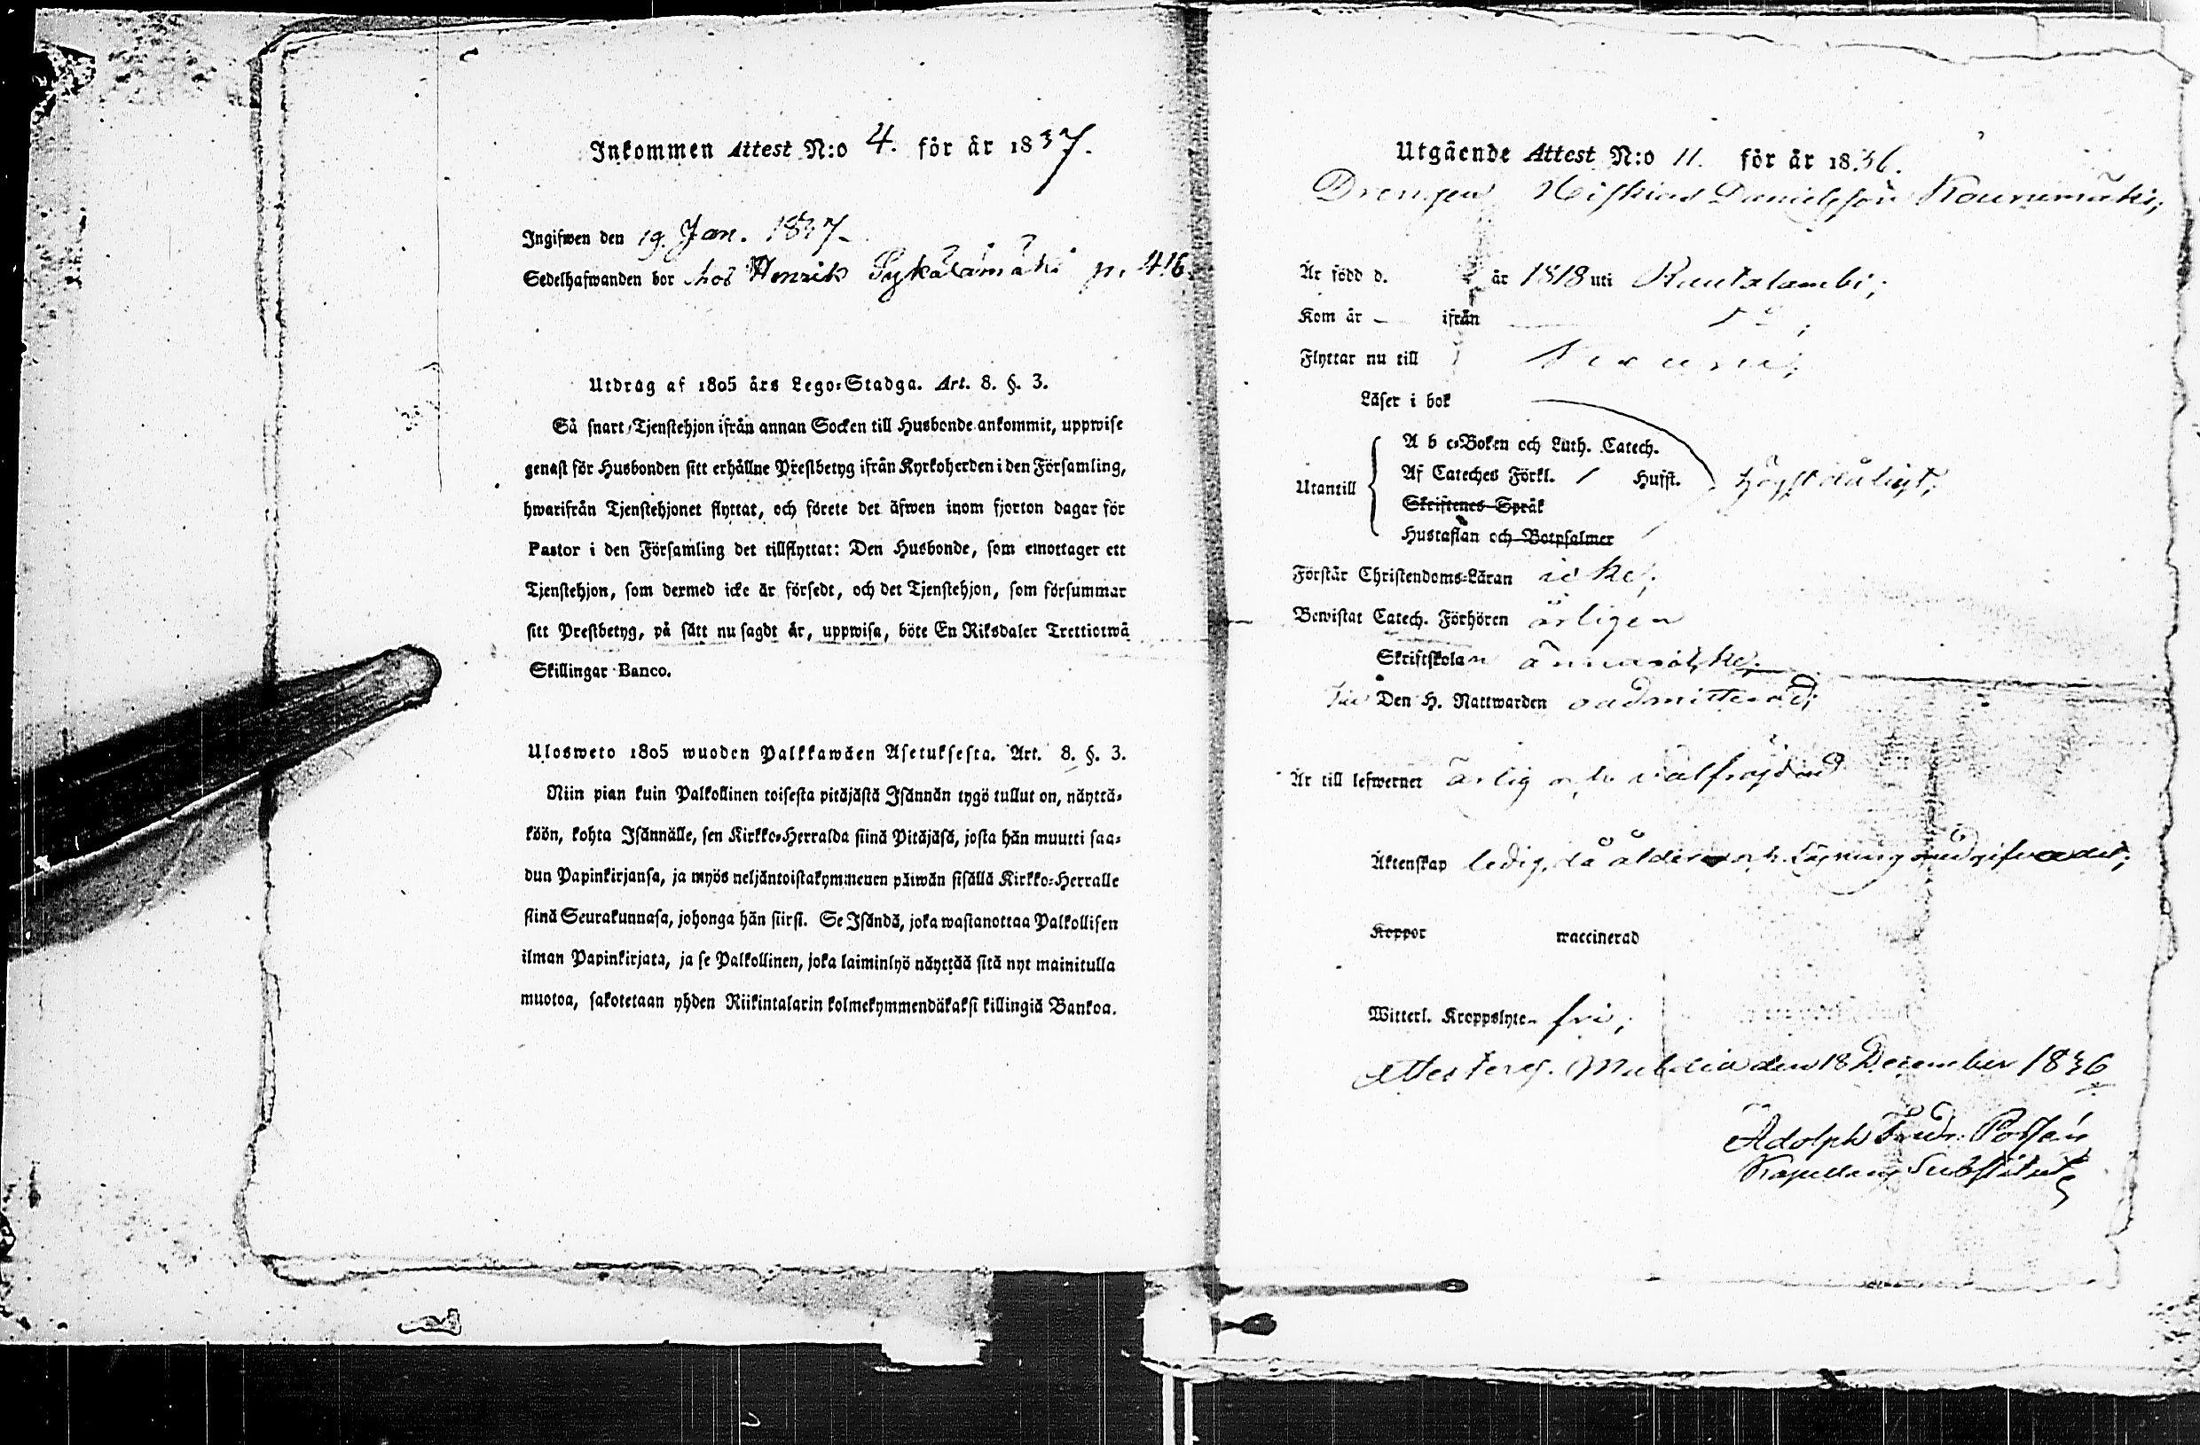 Inkommen Attest N:o 4. för år 1837.
Ingifwen den 19. Jan. 1837.
Sedelhafwanden bor hos Henrik Sykäsämäki p. 416.
Utdrag af 1805 års Lego-Stadga. Art. 8. §. 3.
Så snart Tjenstehjon ifrån annan Socken till Husbonde ankommit, uppwise
genast för Husbonden sitt erhållne Prestbetyg ifrån Kyrkoherden i den Församling,
hwarifrån Tjenstehjonet flyttat, och förete det äfwen inom fjorton dagar för
Pastor i den Församling det tillflyttat: Den Husbonde, som emottager ett
Tjenstehjon, som dermed icke är försedt, och det Tjenstehjon, som försummar
sitt Prestbetyg, på sätt nu sagdt är, uppwisa, böte En Riksdaler Trettiotwå
Skillingar Banco.
Ulosweto 1805 wuoden Palkkawäen Asetuksesta. Art. 8. §. 3.
Niin pian kuin Palkollinen toisesta pitäjästä Isännän tygö tullut on, näyttä-
köön, kohta Isännälle, sen Kirkko-Herralda siinä Pitäjäsä, josta hän muutti saa-
dun Papinkirjansa, ja myös neljäntoistakymmenen päiwän sisällä Kirkko-Herralle
siinä Seurakunnasa, johonga hän siirsi. Se Isändä, joka wastanottaa Palkollisen
ilman Papinkirjata, ja se Palkollinen, joka laiminlyö näyttää sitä nyt mainitulla
muotoa, sakotetaan yhden Riikintalarin kolmekymmendäkaksi killingiä Bankoa.
Utgående Attest N:o 11. för år 1836.
Drengen Hiskias Danielsson
Är född d. år 1818 uti Rautalambi;
Kom år – ifrån
Flyttar nu till
Läser i bok
A b c-Boken och Luth. Catech.
Utantill Af Cateches Förkl. / Husst. högst dåligt;
Skriftenes Språk
Hustaflan och Botpsalmer
Förstår Christendoms-Läran icke;
Bewistat Catech. Förhören årligen
Skriftskolan ännu icke;
Till Den H. Nattwarden oadmitterad;
Är till lefwernet ärlig och välfrejdad
Äktenskap ledig, då ålder och
Koppor waccinerad
Witterl. Kroppslyte- fri;
Attesteras. Muldia den 18 December 1836
Adolph Fredr. Possén
Kapellans Substitut